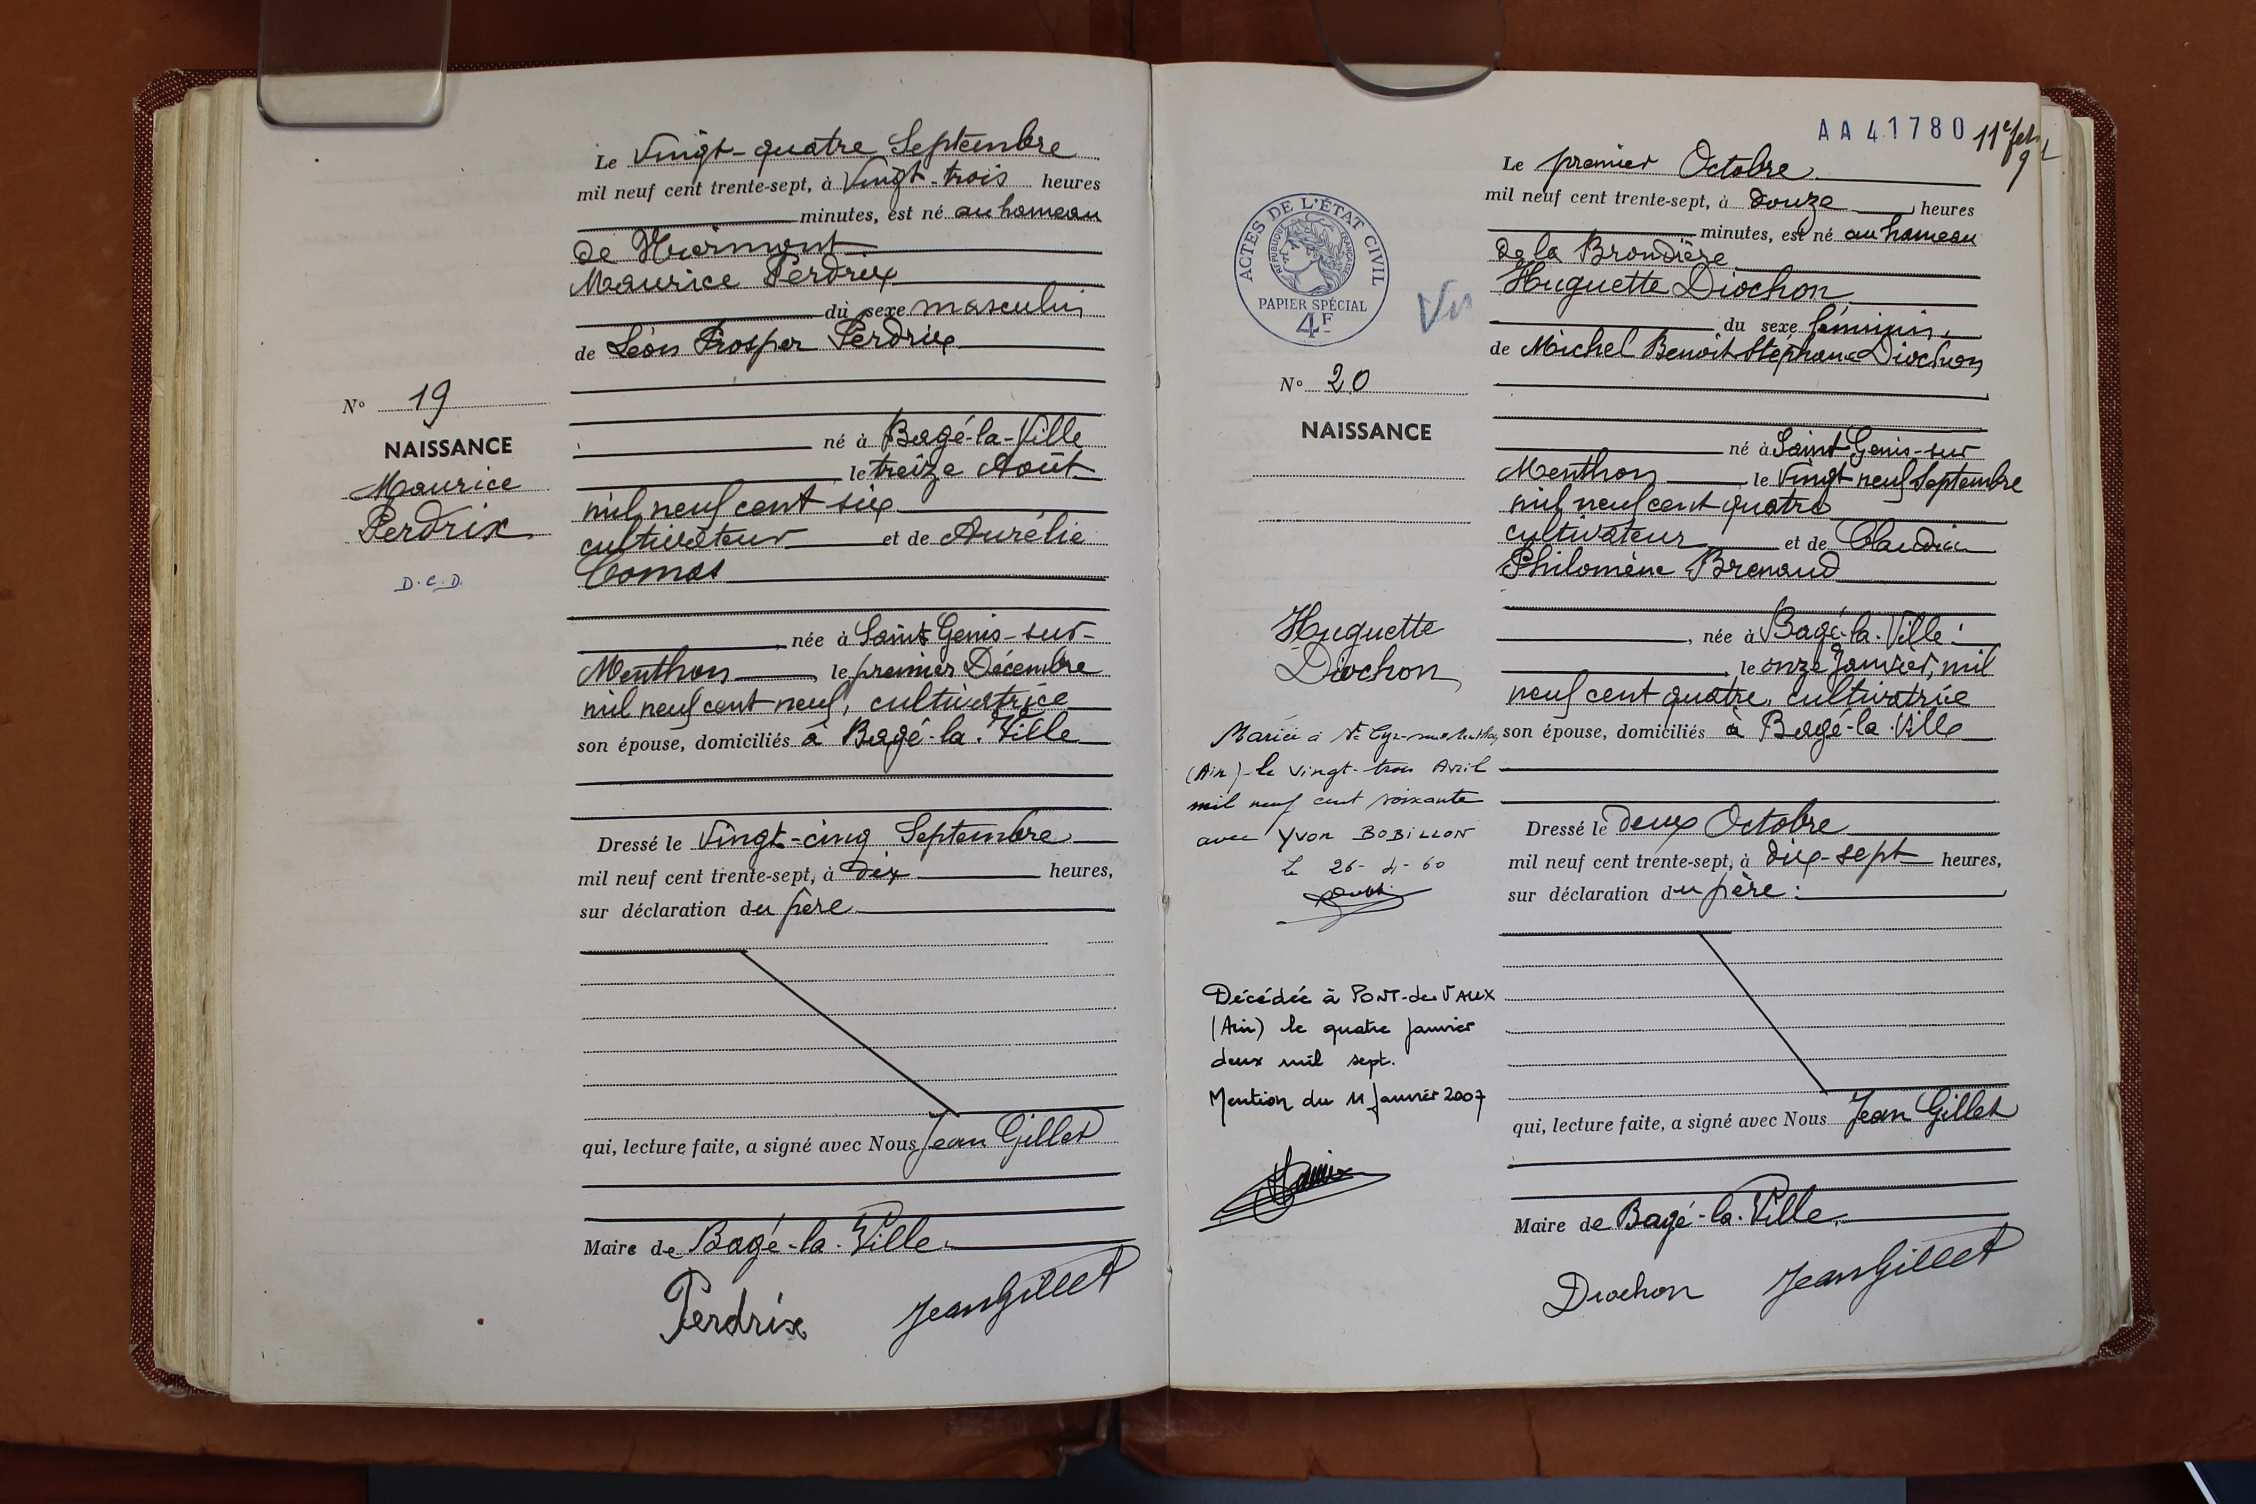 Le Vingt-quatre Septembre
mil neuf cent trente-sept, à Vingt-trois heures
minutes, est né au hameau
de
Maurice Perdrix
du sexe masculin
de Léon Prosper Perdrix
né à Bagé-la-Ville
le treize Août
mil neuf cent six
cultivateur et de Aurélie
Comas
née à Saint Genis-sur-
Menthon le premier Décembre
mil neuf cent neuf, cultivatrice
son épouse, domiciliés à Bagé-la-Ville
Dressé le Vingt-cinq Septembre
mil neuf cent trente-sept, à dix heures,
sur déclaration du père
qui, lecture faite, a signé avec Nous Jean Gillet
Maire de Bagé-la-Ville.
Perdrix Jean Gillet
N° 19
NAISSANCE
Maurice
Perdrix
D.C.D.
AA 41780
11e
9
ACTES DE L'ÉTAT CIVIL
RÉPUBLIQUE FRANÇAISE
PAPIER SPÉCIAL
4F
Vu
N° 20
NAISSANCE
Huguette
Diochon
Mariée à St Cyr-sur-Menthon
(Ain) le vingt-trois Avril
mil neuf cent soixante
avec Yvon BOBILLON
le 26-4-60
Décédée à PONT-de-VAUX
(Ain) le quatre janvier
deux mil sept.
Mention du 11 janvier 2007
Le premier Octobre
mil neuf cent trente-sept, à douze heures
minutes, est né au hameau
de la Brondière
Huguette Diochon
du sexe féminin,
de Michel Benoit Stéphane Diochon
né à Saint Genis-sur
Menthon le Vingt neuf Septembre
mil neuf cent quatre
cultivateur et de Claudia
Philomène Brenaud
, née à Bagé-la-Ville
, le onze Janvier, mil
neuf cent quatre, cultivatrice
son épouse, domiciliés à Bagé-la-Ville
Dressé le deux Octobre
mil neuf cent trente-sept, à dix-sept heures,
sur déclaration du père
qui, lecture faite, a signé avec Nous Jean Gillet
Maire de Bagé-la-Ville.
Diochon Jean Gillet